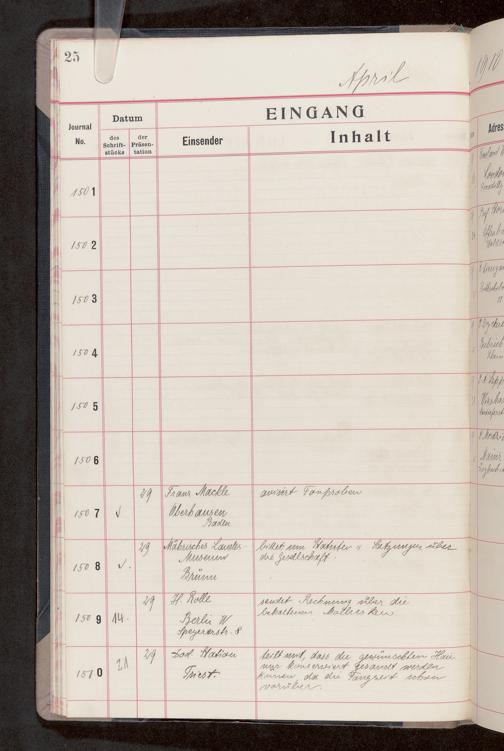 25
April
1910
Journal No.
Datum
des Schrift-stücks
der Präsen-tation
EINGANG
Einsender
Inhalt
Adres
1501
1502
1503
1504
1505
1506
1507 √ 29 Franz Mackle avisiert Tonproben
Oberhausen
Baden
1508 √. 29 Mährisches Landes- bittet um Statuten u Satzungen über
Museum die Gesellschaft.
Brünn
1509 14. 29 H. Rolle sendet Rechnung über die
Berlin W behaltenen Mollusken.
Speyererstr. 8
1510 21 29 Zool. Station teilt mit, dass die gewünschten Haie
Triest. nur konserviert gesandt werden
können, da die Fangzeit schon
vorüber.